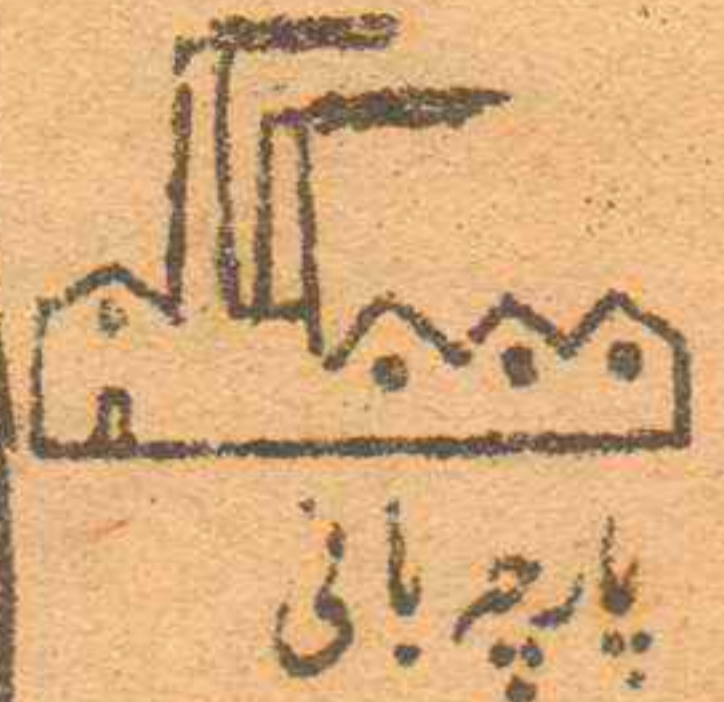 پارچہ بافی